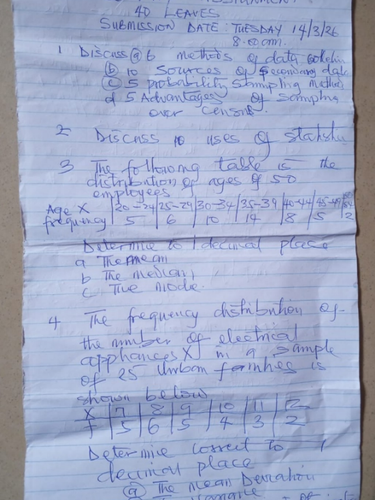 ASSIGNMENT
40 LEAVES
SUBMISSION DATE: TUESDAY 14/3/26
8 a.m.
1 Discuss (a) 6 methods of data
(b) 10 Sources of Secondary data
(c) 5 probability Sampling method
d 5 Advantages of Sampling
over Census.
2 Discuss 10 uses of
3 The following table is the
distribution of ages of 50
employees
Age X | 20-24 | 25-29 | 30-34 | 35-39 | 40-44 | 45-49
frequency | 5 | 6 | 10 | 14 | 8 | 5 | 2
Determine to 1 decimal place
a The mean
b The median,
c The mode.
4 The frequency distribution of
the number of electrical
appliances X in a sample
of 25 urban families is
shown below
X | 7 | 8 | 9 | 10 | 11 |
f | 5 | 6 | 5 | 4 | 3 | 2
Determine correct to 1
decimal place
(a) The mean Deviation